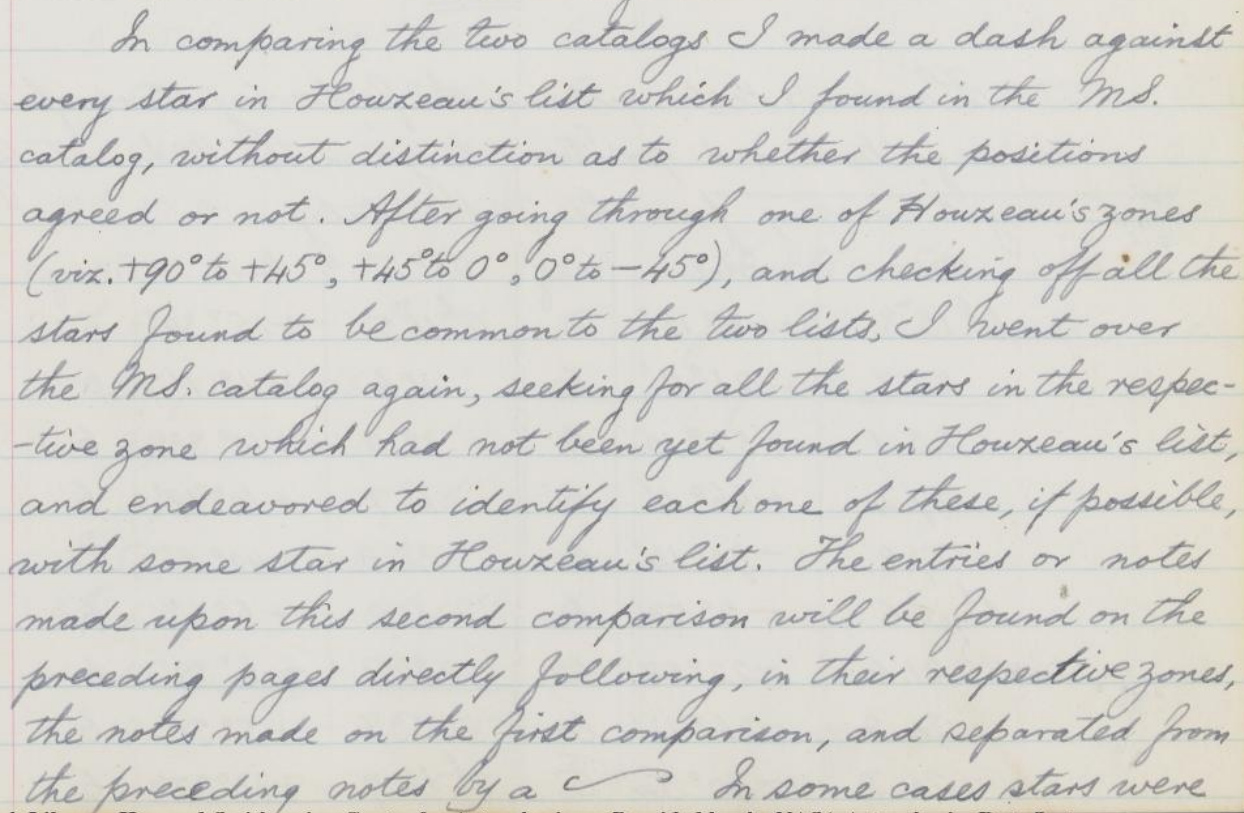 In comparing the two catalogs I made a dash against
every star in Houzeau's list which I found in the MS.
catalog, without distinction as to whether the positions
agreed or not. After going through one of Houzeau's zones
(viz. +90° to +45°, +45° to 0°, 0° to -45°), and checking off all the
stars found to be common to the two lists, I went over
the MS. catalog again, seeking for all the stars in the respec-
-tive zone which had not been yet found in Houzeau's list,
and endeavored to identify each one of these, if possible,
with some star in Houzeau's list. The entries or notes
made upon this second comparison will be found on the
preceding pages directly following, in their respective zones,
the notes made on the first comparison, and separated from
the preceding notes by a In some cases stars were